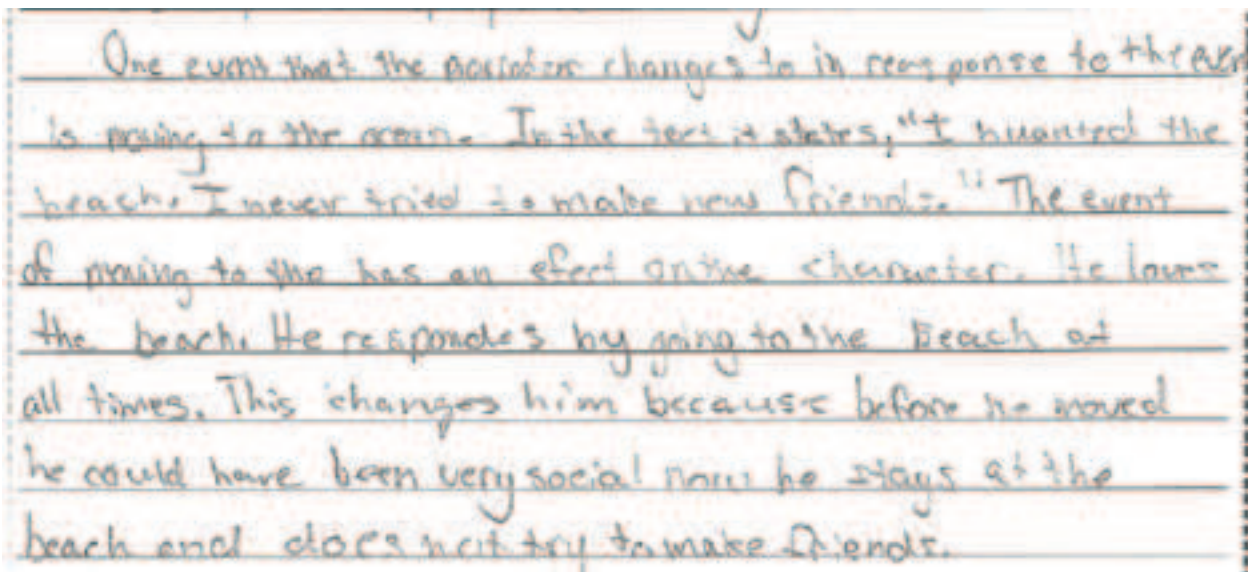 One event that the narrator changes to in reasponse to the even
is moving to the ocean. In the text it states, "I huanted the
beach. I never tried to make new friends." The event
of moving to the has an efect on the character. He loves
the beach. He respondes by going to the Beach at
all times. This changes him because before he moved
he could have been very social now he stays at the
beach and does not try to make friends.